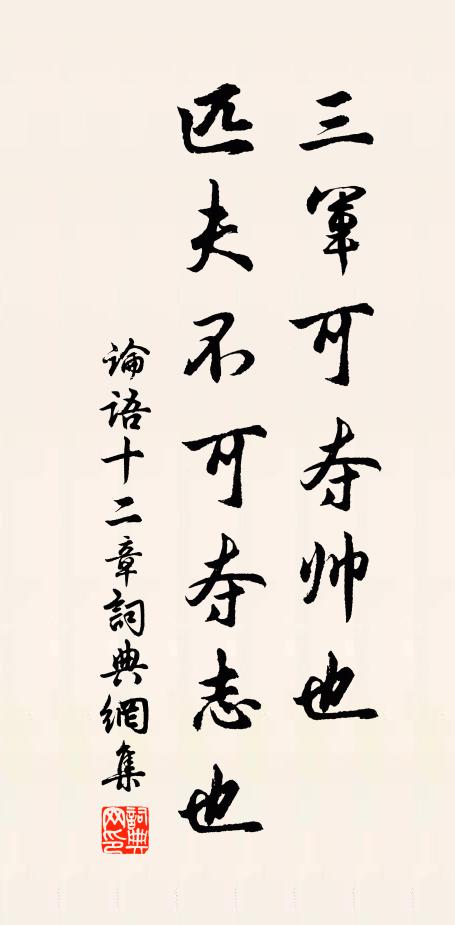 三軍可夺帅也
匹夫不可夺志也
论语十二章詞典網集
詞典网印